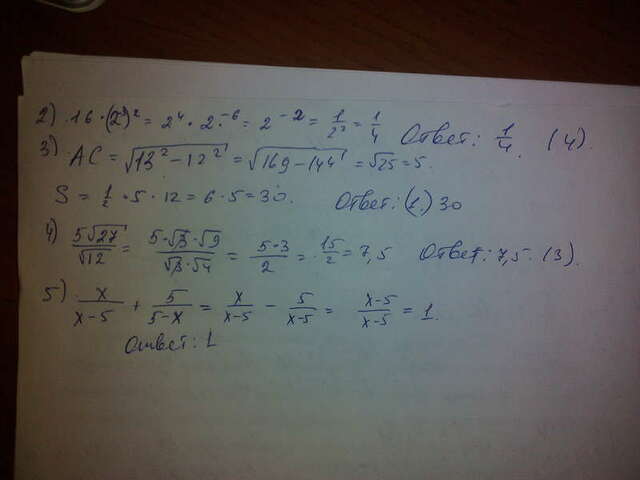 2) 16·(2³)² = 2⁴·2⁻⁶ = 2⁻² = 1/2² = 1/4 Ответ: 1/4. (4).
3) AC = √(13² − 12²) = √(169 − 144) = √25 = 5.
S = 1/2 · 5 · 12 = 6 · 5 = 30. Ответ: (1.) 30
4) 5√27/√12 = 5·√3·√9/√3·√4 = 5·3/2 = 15/2 = 7,5 Ответ: 7,5. (3).
5) x/x−5 + 5/5−x = x/x−5 − 5/x−5 = x−5/x−5 = 1.
Ответ: 1